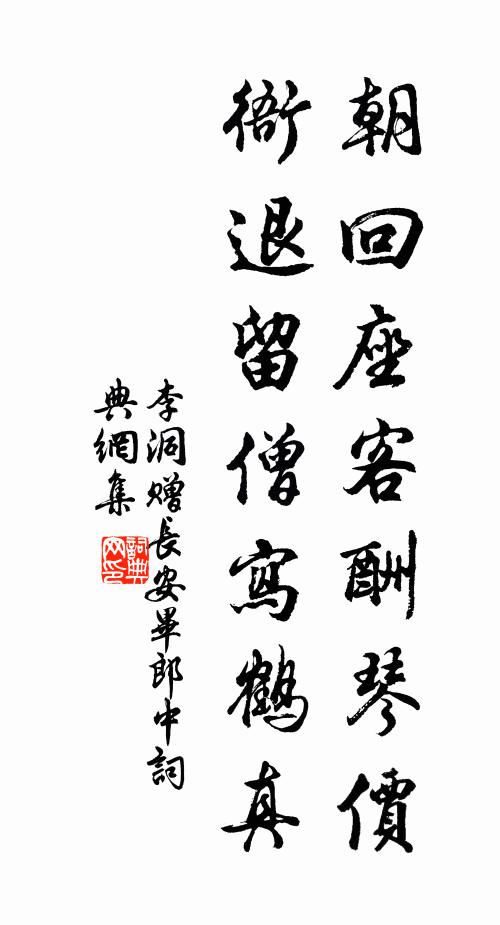 朝回座客酬琴價
衙退留僧寫鶴真
李洞贈長安畢郎中詞
典網集
詞典
网印